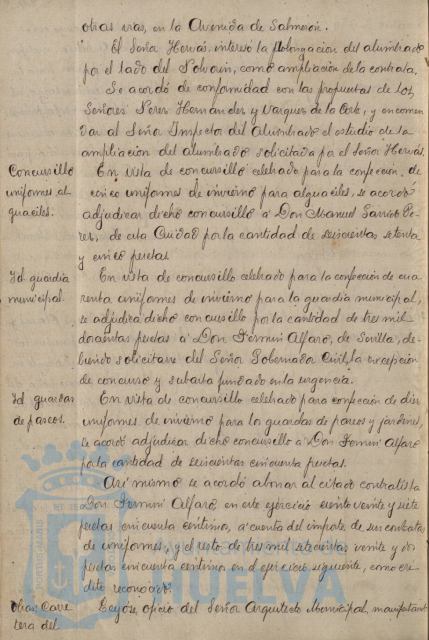 otras vias, en la Avenida de Salmerón.
El Señor Hervás, interesó la prolongación del alumbrado
por el lado del Polvorin, como ampliación de la contrata.
Se acordó de conformidad con las propuestas de los
Señores Perez Hernandez y Vazquez de la Corte, y encomen
dar al Señor Inspector del Alumbrado el estudio de la
ampliación del alumbrado solicitada por el Señor Hervás.
Concursillo
uniformes al
guaciles.
En vista de concursillo celebrado para la confección de
cinco uniformes de invierno para alguaciles, se acordó
adjudicar dicho concursillo á Don Manuel Garrido Pe
rez, de esta Ciudad por la cantidad de seiscientas setenta
y cinco pesetas
Id. guardia
municipal.
En vista de concursillo celebrado para la confección de cua
renta uniformes de invierno para la guardia municipal,
se adjudica dicho concursillo por la cantidad de tres mil
doscientas pesetas á Don Fermin Alfaro, de Sevilla, de-
biendo solicitarse del Señor Gobernador Civil, la excepción
de concurso y subasta fundado en la urgencia.
Id guardas
de paseos.
En vista de concursillo celebrado para confección de diez
uniformes de invierno para los guardas de paseos y jardines,
se acordó adjudicar dicho concursillo á Don Fermin Alfaro
por la cantidad de seiscientas cincuenta pesetas.
Asi mismo se acordó abonar al citado contratista
Don Fermin Alfaro en este ejercicio ciento veinte y siete
pesetas cincuenta centimos, á cuenta del importe de sus contratas
de uniformes, y el resto de tres mil setecientas veinte y dos
pesetas cincuenta centimos en el ejercicio siguiente, como cré-
dito reconocido.
Obras Carre
tera del
Leyóse oficio del Señor Arquitecto Municipal, manifestando
HUELVA